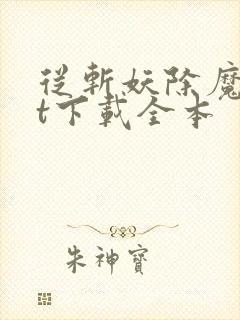 從斬妖除魔
t下載全本
朱神寶